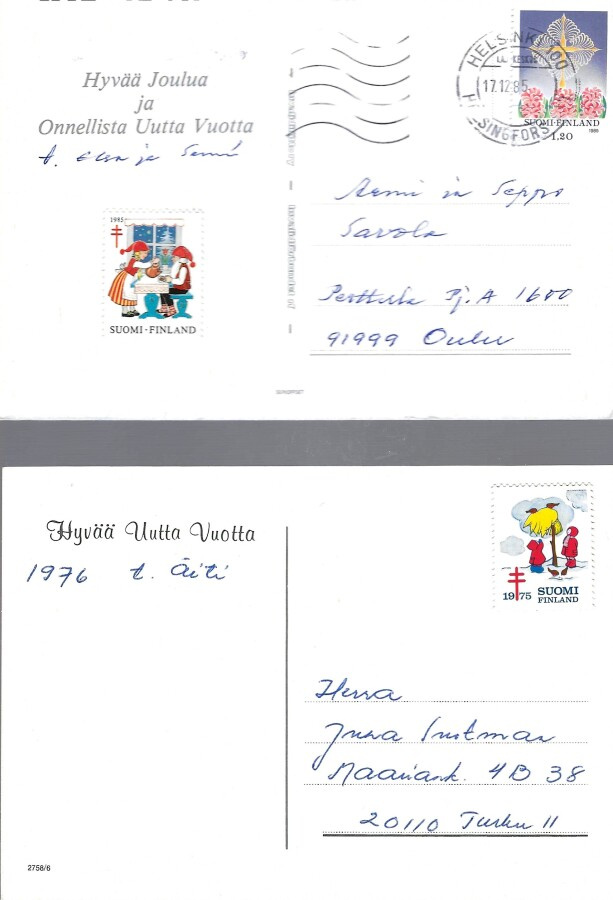 Hyvää Joulua
ja
Onnellista Uutta Vuotta
t. Elsa ja Sami
1985
SUOMI-FINLAND
HELSINKI 100
17.12.85
HELSINGFORS
SUOMI-FINLAND
1985
1.20
Armi ja Seppo
Savola
Perttula Pj. A 1600
91999 Oulu
Hyvää Uutta Vuotta
1976 t. Äiti
1975 SUOMI
FINLAND
Herra
Juha
Maariank. 4B 38
20110 Turku 11
2758/6